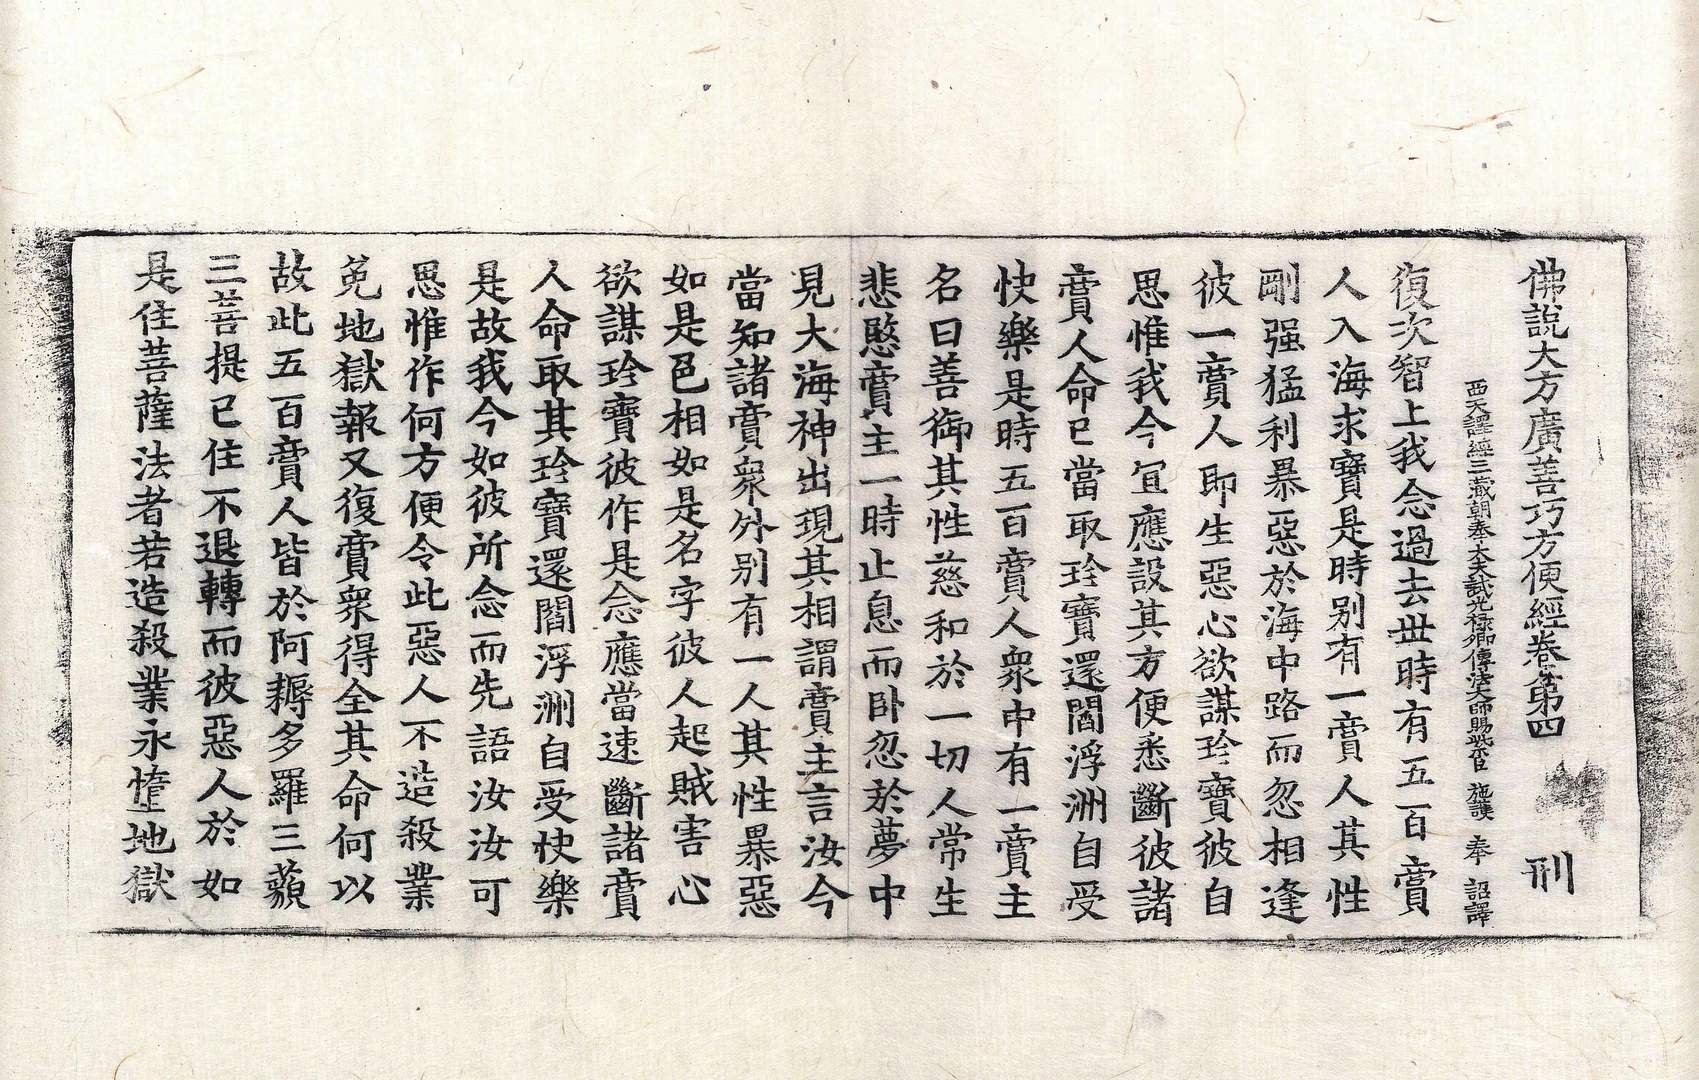 佛說大方廣善巧方便經卷第四 刑
西天譯經三藏朝奉大夫試光祿卿傳法大師賜紫臣 施護 奉 詔譯
復次智上我念過去世時有五百賣
人入海求寶是時别有一賣人其性
剛强猛利暴惡於海中路而忽相逢
彼一賣人即生惡心欲謀珍寶彼自
思惟我今宜應設其方便悉斷彼諸
賣人命已當取珍寶還閻浮洲自受
快樂是時五百賣人衆中有一賣主
名曰善御其性慈和於一切人常生
悲愍賣主一時止息而卧忽於夢中
見大海神出現其相謂賣主言汝今
當知諸賣衆外别有一人其性暴惡
如是色相如是名字彼人起賊害心
欲謀珍寶彼作是念應當速斷諸賣
人命取其珍寶還閻浮洲自受快樂
是故我今如彼所念而先語汝汝可
思惟作何方便令此惡人不造殺業
免地獄報又復賣衆得全其命何以
故此五百賣人皆於阿耨多羅三藐
三菩提已住不退轉而彼惡人於如
是住菩薩法者若造殺業永墮地獄